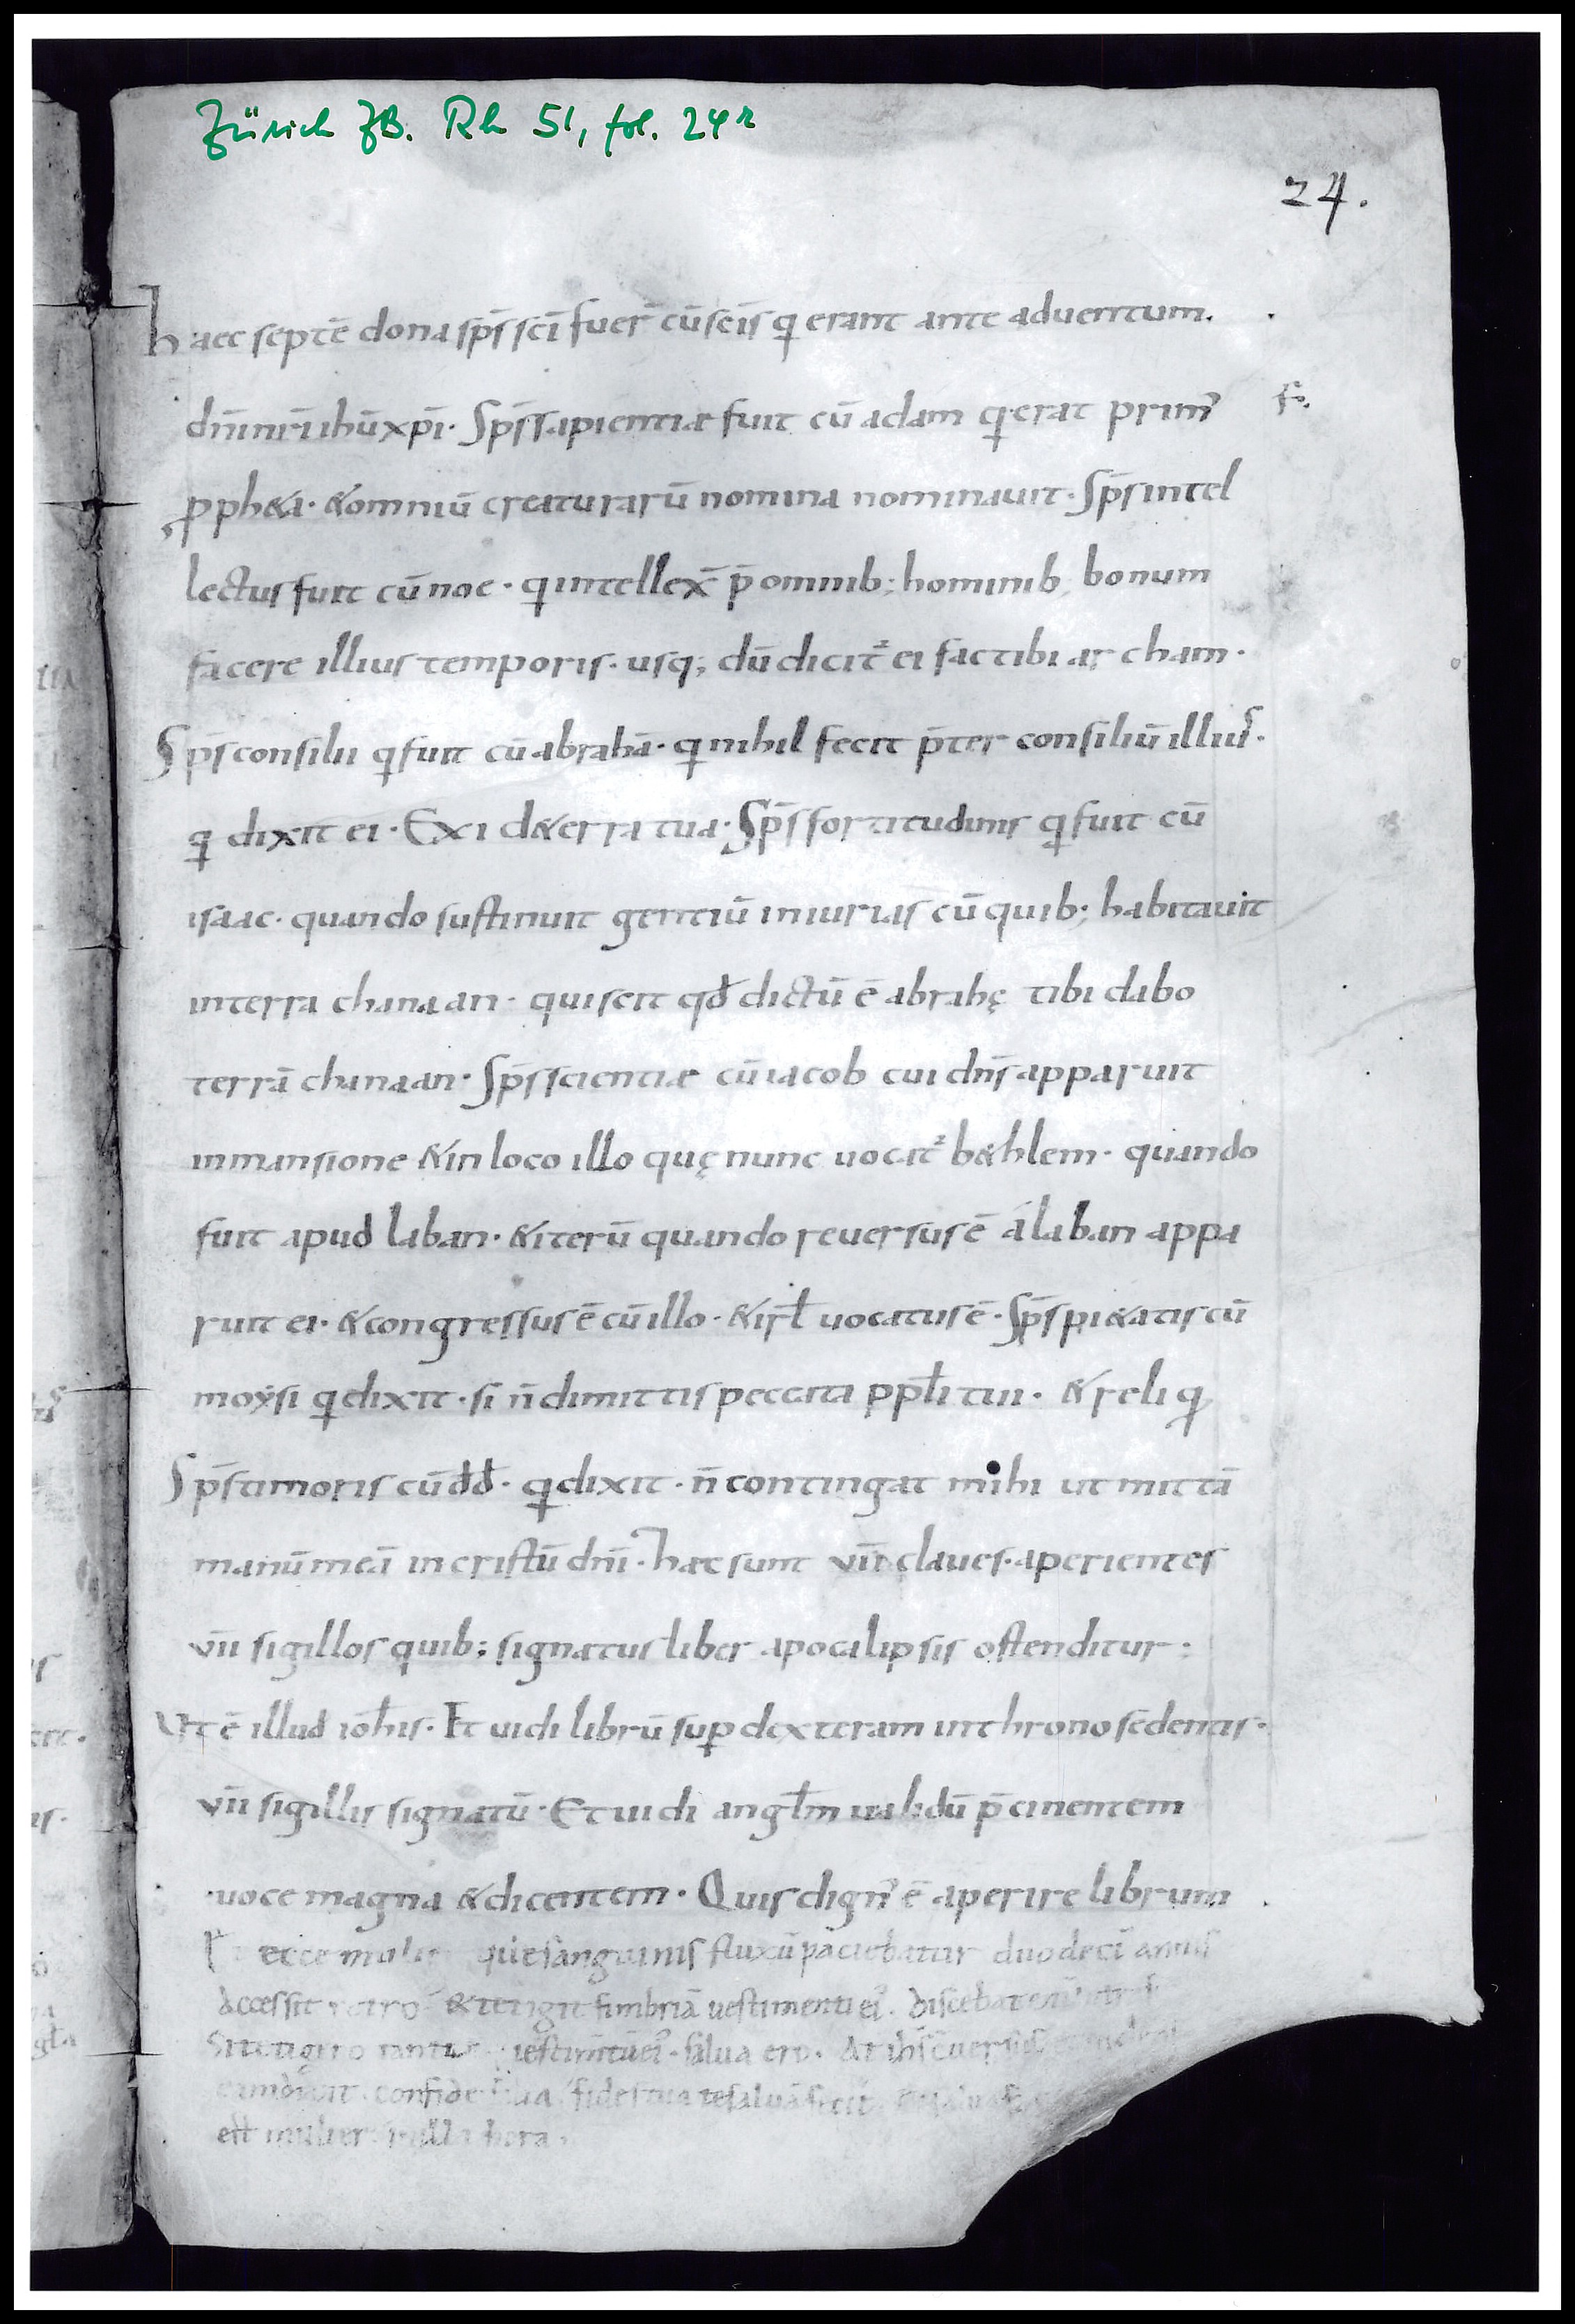 Zürich ZB. Rh 51, fol. 24r
24.
haec septē dona sp̄s sc̄i fuer̄ cū sc̄is q erant ante aduentum.
dn̄i nr̄i ihū xp̄i· Sp̄s sapientiæ fuit cū adam q erat prim᾿
ꝓph&a· &omniū creaturarū nomina nominauit· Sp̄s intel
lectus fuit cū noe· q intellex̄ p̄ omnib; hominib; bonum
facere illius temporis· usq; dū dicit᷑ ei fac tibi archam·
Sp̄s consilii q fuit cū abrahā· q nihil fecit p̄ter consiliū illius·
q dixit ei· Exi de&erra tua· Sp̄s fortitudinis q fuit cū
isaac· quando sustinuit gentiū iniurias cū quib; habitauit
in terra chanaan· qui scit qd̄ dictū ē abrahę tibi dabo
terrā chanaan· Sp̄s scientiæ cū iacob cui dn̄s apparuit
in mansione & in loco illo quę nunc uocat᷑ b&hlem· quando
fuit apud laban· & iterū quando reuersus ē á laban appa
ruit ei· & congressus ē cū illo· & isrł uocatus ē· Sp̄s pi&atis cū
moẏsi q dixit· si n̄ dimittis peccata ppłi tui· & reliq
Sp̄s timoris cū dd̄· q dixit· n̄ contingat mihi ut mittā
manū meā in cristū dn̄i· haec sunt vii claues· aperientes
vii sigillos quib; signatus liber apocalipsis ostenditur:
Vt ē illud ioħis· Et uidi librū sup̱ dexteram in throno sedentis·
vii sigillis signatū· Et uidi angłm ualidū p̄cinentem
uoce magna & dicentem· Quis dign᾿ ē aperire librum
ecce que sanguinis fluxū paciebatur duodecī annis
Accessit retro & tetigit fimbriā uestimenti ei᾿. dicebat
Si tetigero uestimtū ei᾿· salua ero· At ihs̄
confide filia fides tua te saluā fecit
est mulier illa hora·